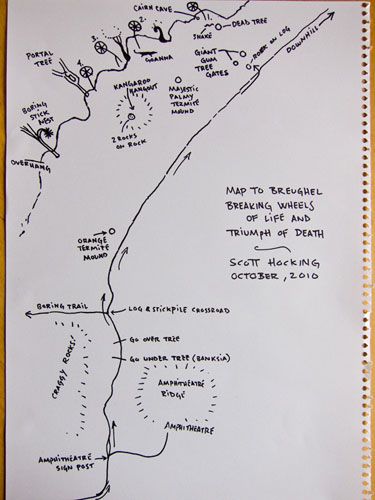 CAIRN CAVE
1.
SNAKE
DEAD TREE
2.
GOANNA
3.
GIANT
GUM
TREE
GATES
ROCK ON LOG
DOWNHILL
PORTAL
TREE
4.
KANGAROO
HANGOUT
2 ROCKS
ON ROCK
MAJESTIC
PALMY
TERMITE
MOUND
BORING
STICK
NEST
OVERHANG
MAP TO BREUGHEL
BREAKING WHEELS
OF LIFE AND
TRIUMPH OF DEATH
SCOTT HOCKING
OCTOBER, 2010
ORANGE
TERMITE
MOUND
BORING TRAIL
LOG & STICKPILE CROSSROAD
CRAGGY ROCKS!
GO OVER TREE
GO UNDER TREE (BANKSIA)
AMPHITHEATRE
RIDGE
AMPHITHEATRE
AMPHITHEATRE
SIGN POST